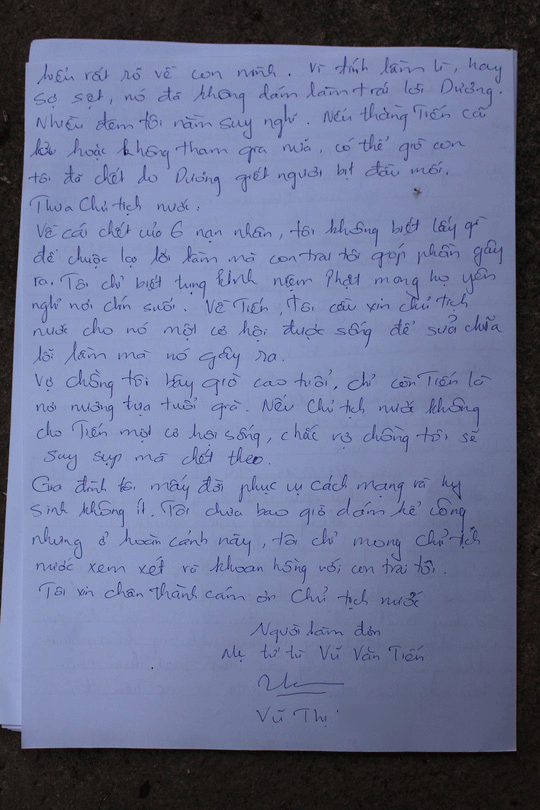 hiểu rất rõ về con mình. Vì tính lầm lì, hay
sợ sệt, nó đã không dám làm trái lời Dương.
Nhiều đêm tôi nằm suy nghĩ. Nếu thằng Tiến cãi
hoặc không tham gia nữa, có thể giờ con
tôi đã chết do Dương giết người bịt đầu mối.
Thưa Chủ tịch nước.
Về cái chết của 6 nạn nhân, tôi không biết lấy gì
để chuộc lại lỗi lầm mà con trai tôi góp phần gây
ra. Tôi chỉ biết tụng kinh niệm Phật mong họ yên
nghỉ nơi chín suối. Về Tiến, tôi cầu xin Chủ tịch
nước cho nó một cơ hội được sống để sửa chữa
lỗi lầm mà nó gây ra.
Vợ chồng tôi bây giờ cao tuổi, chỉ còn Tiến là
nơi nương tựa tuổi già. Nếu Chủ tịch nước không
cho Tiến một cơ hội sống, chắc vợ chồng tôi sẽ
suy sụp mà chết theo.
Gia đình tôi mấy đời phục vụ cách mạng và hy
sinh không ít. Tôi chưa bao giờ dám kể công
nhưng ở hoàn cảnh này, tôi chỉ mong Chủ tịch
nước xem xét và khoan hồng với con trai tôi.
Tôi xin chân thành cám ơn Chủ tịch nước
Người làm đơn
Mẹ tử tù Vũ Văn Tiến
Vũ Thị